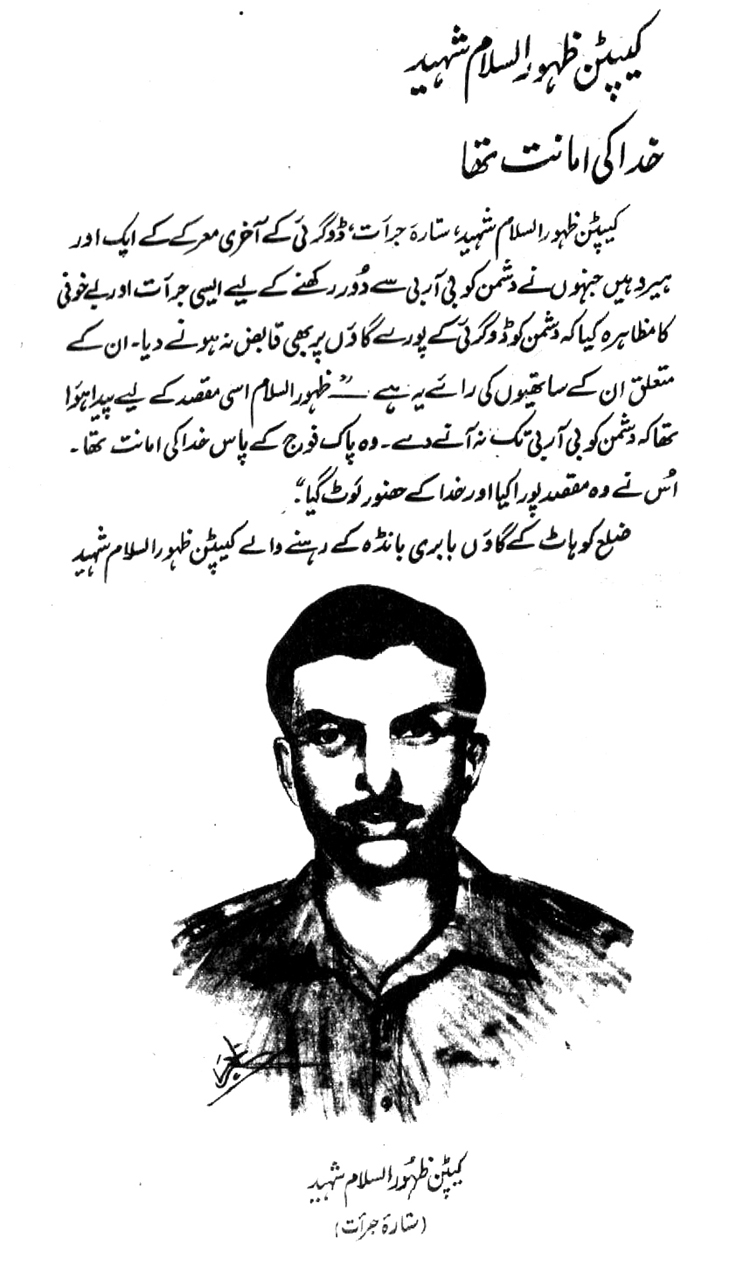 کیپٹن ظہور السلام شہید
خدا کی امانت تھا
کیپٹن ظہور السلام شہید، ستارہ جرأت، ڈوگرئی کے آخری معرکے کے ایک اور
ہیرو ہیں جنہوں نے دشمن کو بی آر بی سے دُور رکھنے کے لیے ایسی جرأت اور بے خوفی
کا مظاہرہ کیا کہ دشمن کو ڈوگرئی کے پورے گاؤں پر بھی قابض نہ ہونے دیا۔ ان کے
متعلق ان کے ساتھیوں کی رائے یہ ہے — ”ظہور السلام اسی مقصد کے لیے پیدا ہؤا
تھا کہ دشمن کو بی آر بی تک نہ آنے دے۔ وہ پاک فوج کے پاس خدا کی امانت تھا۔
اُس نے وہ مقصد پورا کیا اور خدا کے حضور لوٹ گیا۔“
ضلع کوہاٹ کے گاؤں بابری بانڈہ کے رہنے والے کیپٹن ظہور السلام شہید
کیپٹن ظہُور السلام شہید
(ستارۂ جرأت)